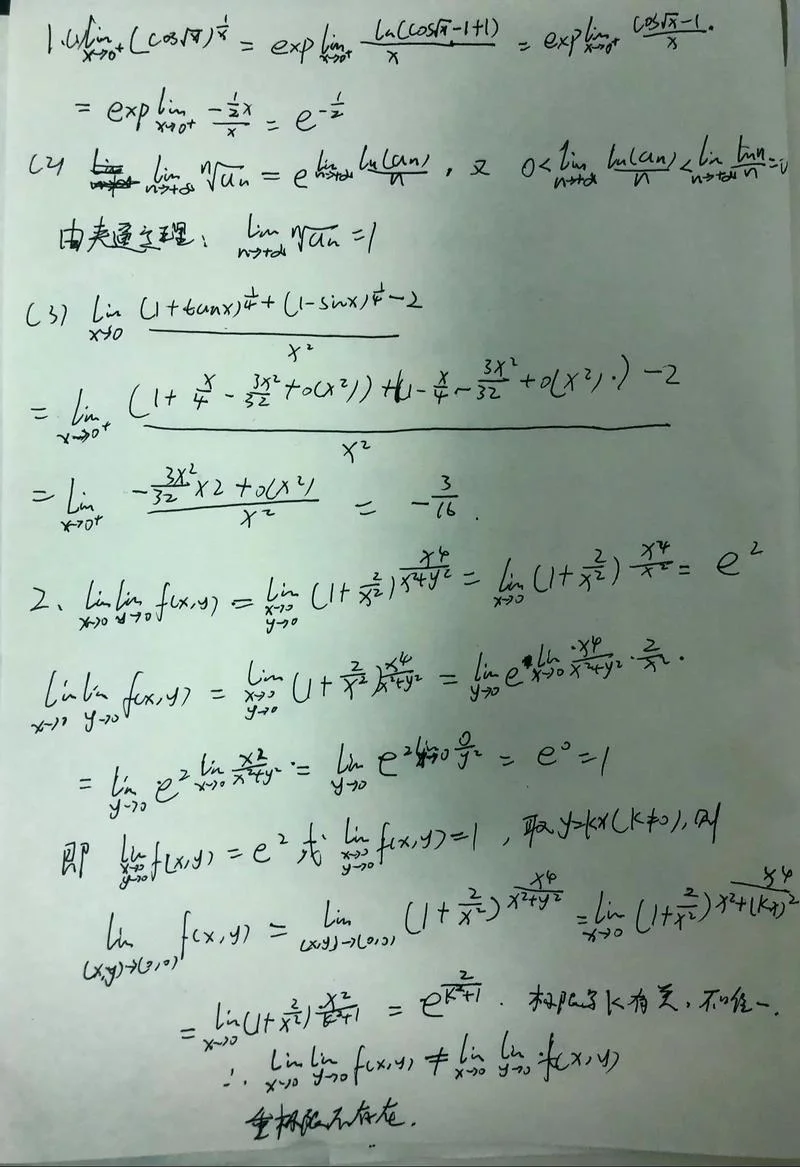 1.(1) lim_{x→0⁺} (cos√x)^{1/x} = exp lim_{x→0⁺} ln(cos√x-1+1)/x = exp lim_{x→0⁺} (cos√x-1)/x.
= exp lim_{x→0⁺} (-½x)/x = e^{-1/2}
(2) lim_{n→+∞} ⁿ√aₙ = e^{lim_{n→+∞} ln(aₙ)/n}, 又 0 < lim_{n→+∞} ln(aₙ)/n < lim_{n→+∞} ln n/n = 0
由夹逼定理: lim_{n→+∞} ⁿ√aₙ = 1
(3) lim_{x→0} ((1+tanx)^{1/4} + (1-sinx)^{1/4} - 2)/x²
= lim_{x→0⁺} ((1 + x/4 - 3x²/32 + o(x²)) + (1 - x/4 - 3x²/32 + o(x²)) - 2)/x²
= lim_{x→0⁺} (-3x²/32 × 2 + o(x²))/x² = -3/16.
2、 lim_{x→0} lim_{y→0} f(x,y) = lim_{x→0 y→0} (1+2/x²)^{x⁴/(x²+y²)} = lim_{x→0} (1+2/x²)^{x⁴/x²} = e²
lim_{x→0} lim_{y→0} f(x,y) = lim_{x→0 y→0} (1+2/x²)^{x⁴/(x²+y²)} = lim_{y→0} e^{lim_{x→0} x⁴/(x²+y²) · 2/x²}.
= lim_{y→0} e^{2 lim_{x→0} x²/(x²+y²)} = lim_{y→0} e^{2 lim 0/y²} = e⁰ = 1
即 lim_{x→0 y→0} f(x,y) = e² 或 lim_{x→0 y→0} f(x,y) = 1, 取 y=kx(k≠0), 则
lim_{(x,y)→(0,0)} f(x,y) = lim_{(x,y)→(0,0)} (1+2/x²)^{x⁴/(x²+y²)} = lim_{x→0} (1+2/x²)^{x⁴/(x²+(kx)²)}
= lim_{x→0} (1+2/x²)^{x²/(k²+1)} = e^{2/(k²+1)}. 极限与k有关, 不唯一.
∴ lim_{x→0} lim_{y→0} f(x,y) ≠ lim_{x→0} lim_{y→0} f(x,y)
重极限不存在.